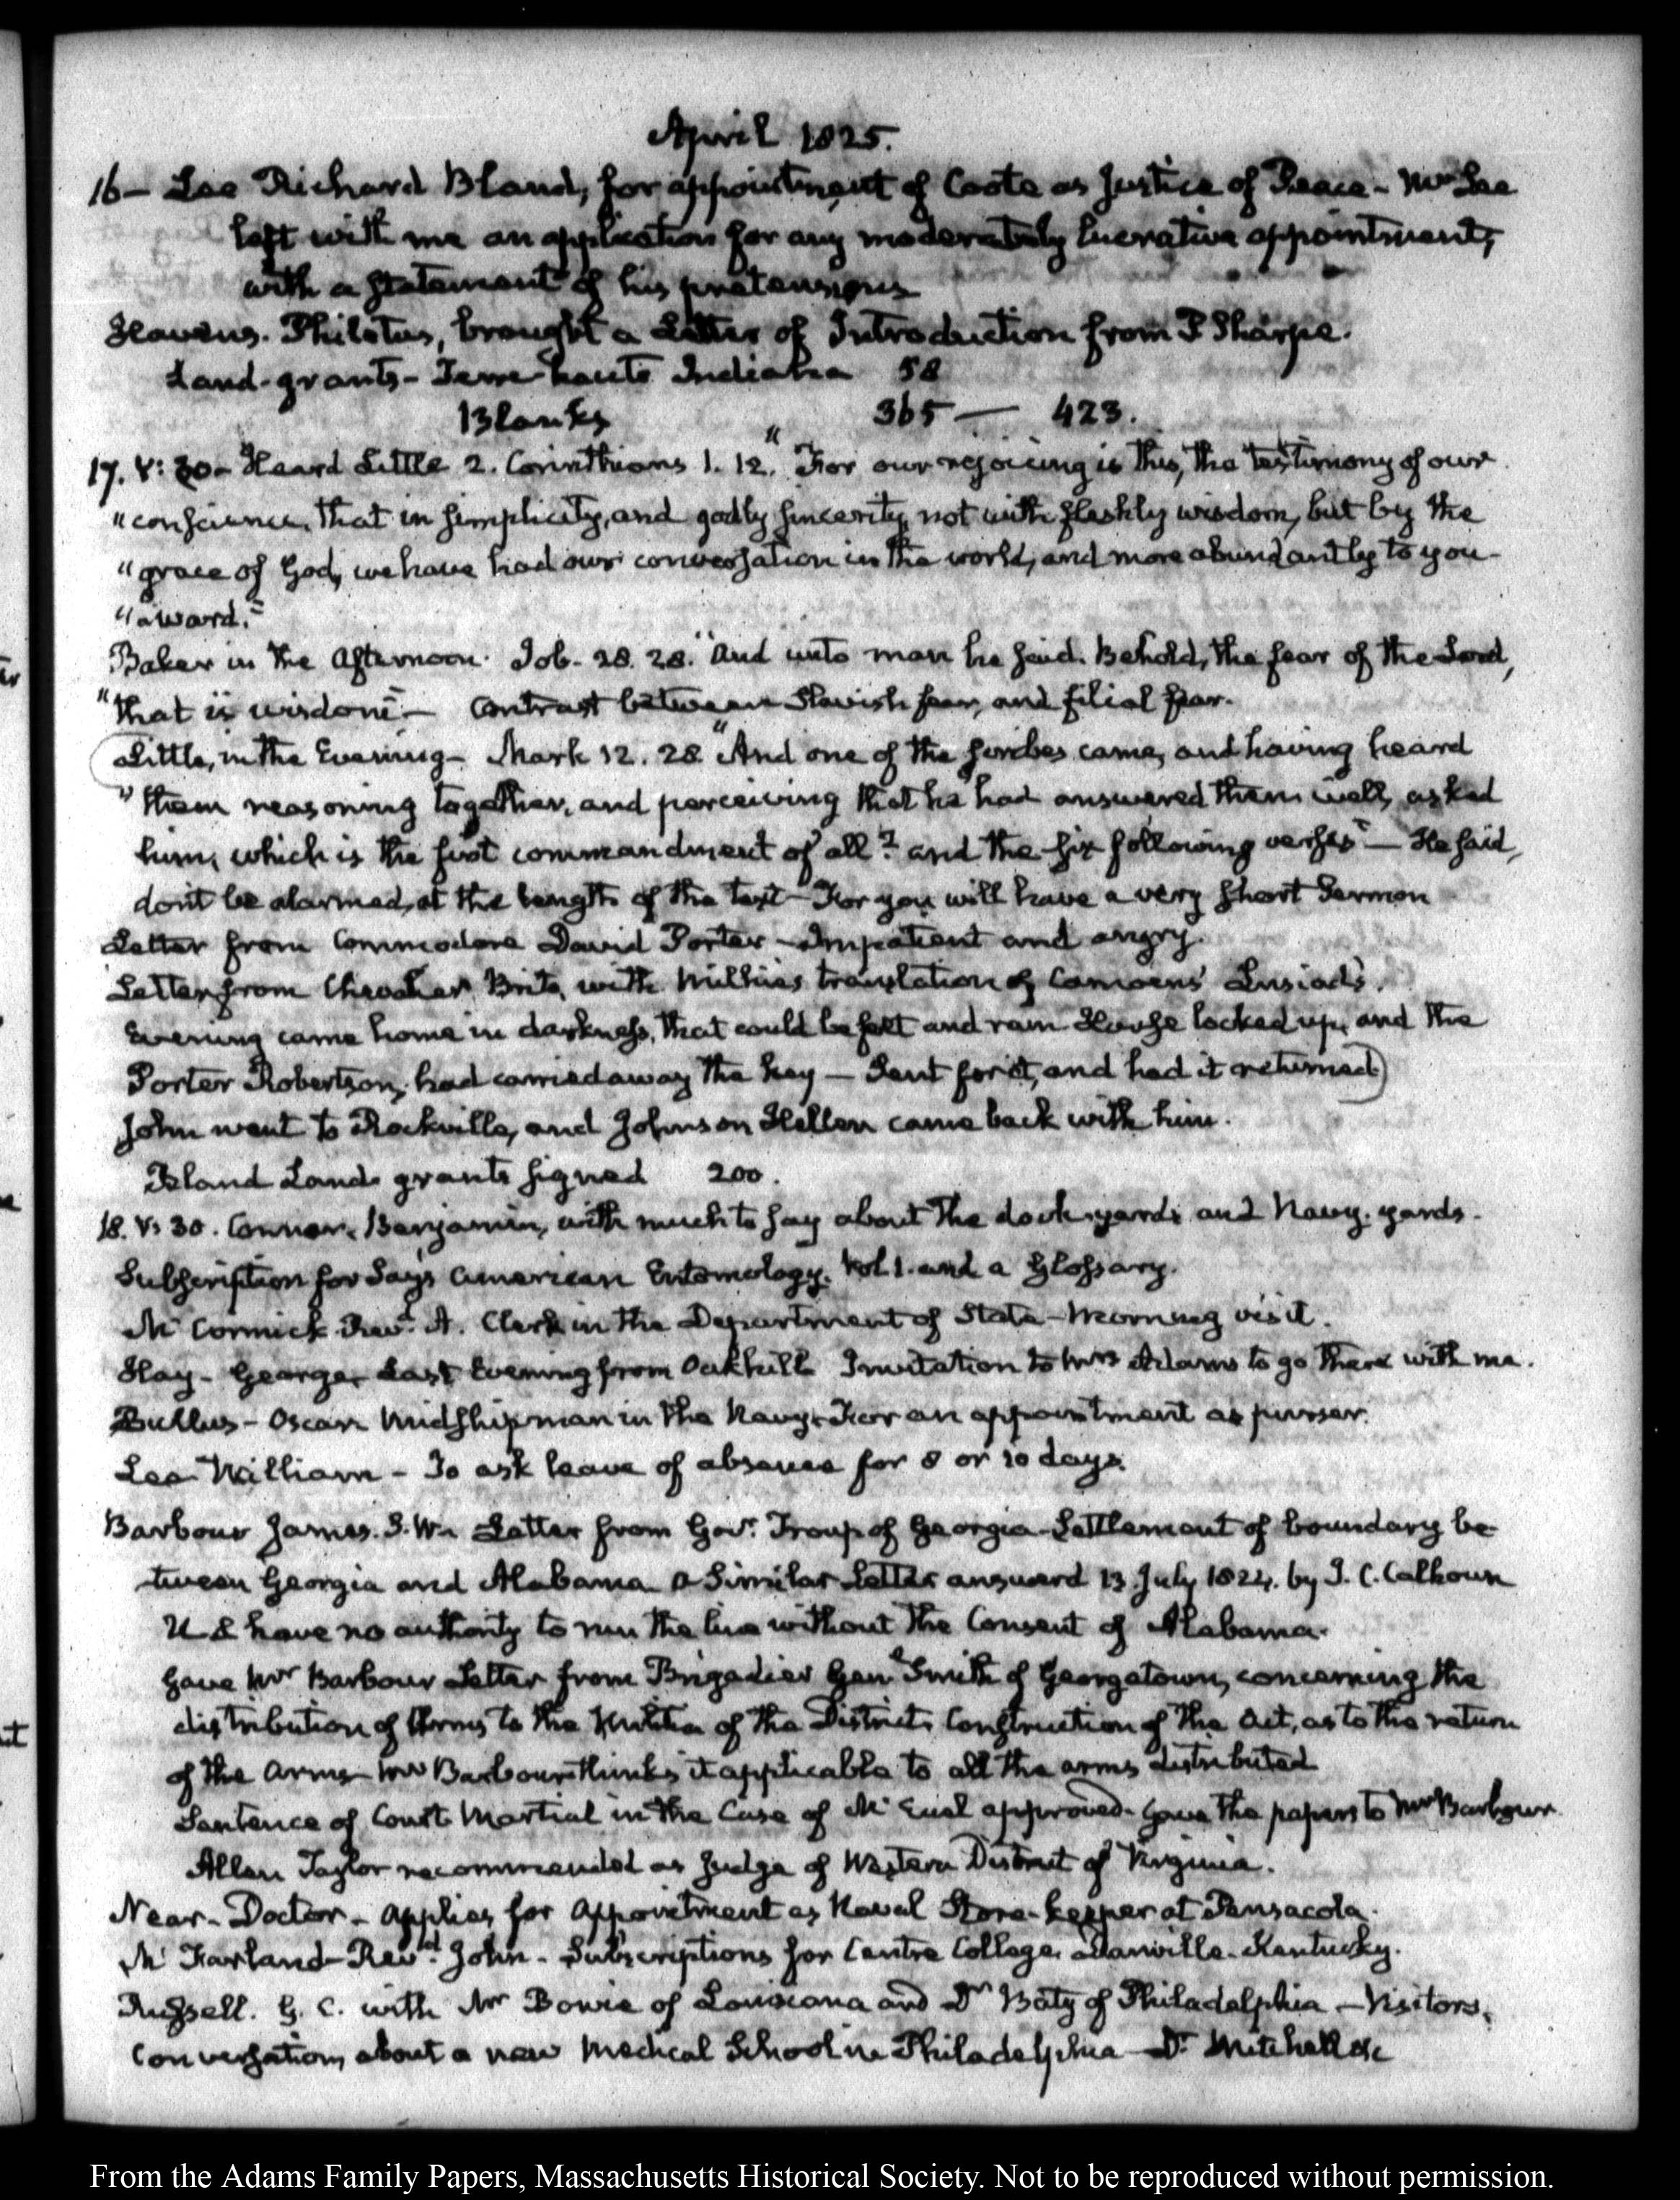 April 1825.
16— Lee Richard Bland, for appointment of Coote as Justice of Peace— Mr Lee
left with me an application for any moderately lucrative appointment,
with a statement of his pretensions
Havens. Philetus, brought a Letter of Introduction from P Sharpe.
Land-grants— Terre-haute Indiana 58
Blanks 365 — 423.
17. V: 30— Heard Little 2. Corinthians 1. 12. "For our rejoicing is this, the testimony of our
"conscience, that in simplicity, and godly sincerity, not with fleshly wisdom, but by the
"grace of God, we have had our conversation in the world, and more abundantly to you-
"award."
Baker in the afternoon. Job. 28. 28. "And unto man he said. Behold, the fear of the Lord,
"that is wisdom"— Contrast between Slavish fear, and filial fear.
Little, in the Evening— Mark 12. 28. "And one of the scribes came, and having heard
"them reasoning together, and perceiving that he had answered them well, asked
him, which is the first commandment of all? and the six following verses"— He said,
don't be alarmed, at the length of the text— For you will have a very short Sermon
Letter from Commodore David Porter— Impatient and angry.
Letter from Chevalier Brito, with Mickle's translation of Camoens' Lusiad.
Evening came home in darkness, that could be felt and rain House locked up, and the
Porter Robertson, had carried away the key— Sent for it, and had it returned)
John went to Rockville, and Johnson Hellen came back with him.
Island Land grants signed 200.
18. V: 30. Connor. Benjamin, with much to say about the dock-yards and Navy-yards.
Subscription for Say's American Entomology. Vol. 1. and a Glossary.
McCormick. Revd. A. Clerk in the Department of State— Morning visit.
Hay— George, Last Evening from Oakhill Invitation to Mrs Adams to go there with me.
Bullus— Oscar Midshipman in the Navy. For an appointment as purser.
Lee William— To ask leave of absence for 8 or 10 days.
Barbour James. S. W. Letter from Govr. Troup of Georgia— Settlement of boundary be-
tween Georgia and Alabama a Similar Letter answered 13 July 1824. by J. C. Calhoun
U S have no authority to run the line without the Consent of Alabama.
Gave Mr Barbour Letter from Brigadier Genl Smith of Georgetown, concerning the
distribution of Arms to the Militia of the District. Construction of the Act, as to the return
of the Arms— Mr Barbour thinks it applicable to all the arms distributed
Sentence of Court Martial in the Case of approved— Gave the papers to Mr Barbour
Allen Taylor recommended as Judge of Western District of Virginia.
Near— Doctor— applies for Appointment as Naval Store-keeper at Pensacola.
McFarland— Revd. John— Subscriptions for Centre College. Danville— Kentucky.
Russell. G. C. with Mr Bowie of Louisiana and Dr Baty of Philadelphia— Visitors,
Conversation, about a new Medical School in Philadelphia— Dr. Mitchell &c
From the Adams Family Papers, Massachusetts Historical Society. Not to be reproduced without permission.